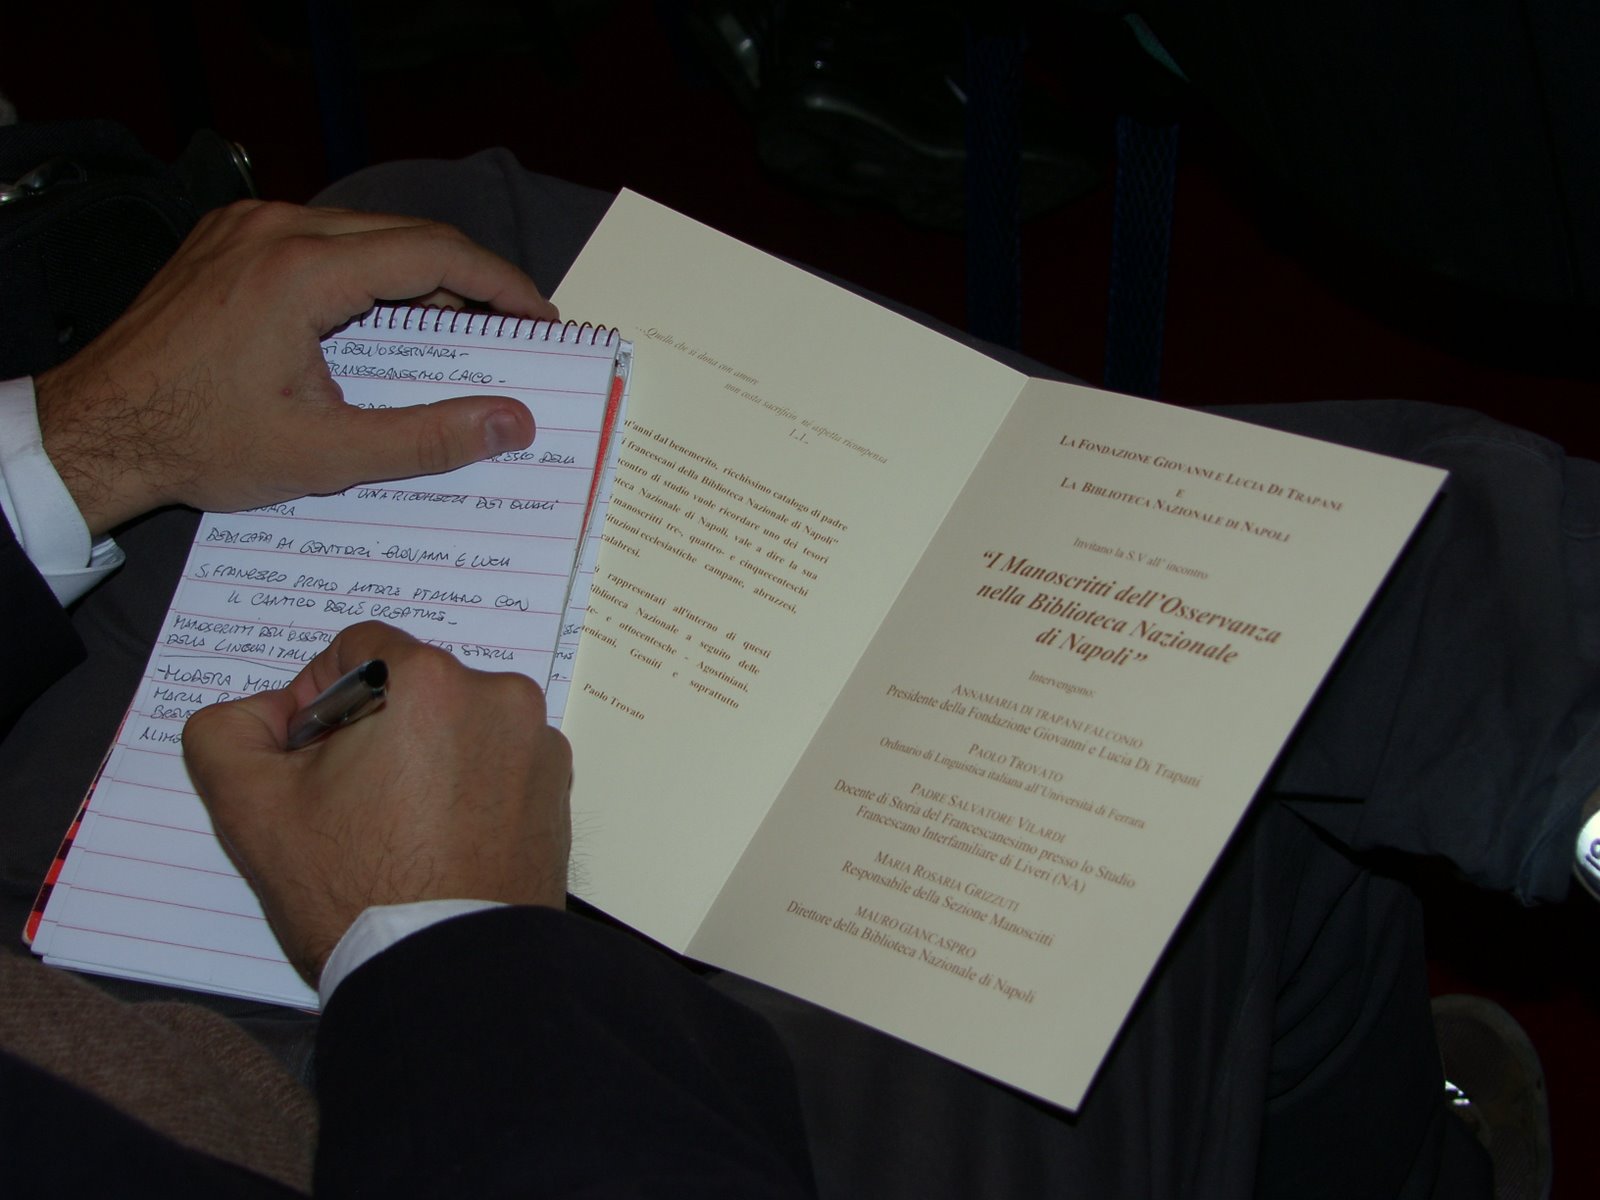 TI DELL'OSSERVANZA-
FRANCESCANESIMO LAICO-
DELLA
UNA RICCHEZZA DEI QUALI
DEDICATA AI GENITORI GIOVANNI E LUCIA
S. FRANCESCO PRIMO AUTORE ITALIANO CON
IL CANTICO DELLE CREATURE-
MANOSCRITTI DELL'OSSERV LA STORIA
DELLA LINGUA ITALIA
MODERA MAU
MARIA
...Quello che si dona con amore
non costa sacrificio né aspetta ricompensa
nt'anni dal benemerito, ricchissimo catalogo di padre
i francescani della Biblioteca Nazionale di Napoli"
contro di studio vuole ricordare uno dei tesori
oteca Nazionale di Napoli, vale a dire la sua
i manoscritti tre-, quattro- e cinquecenteschi
tituzioni ecclesiastiche campane, abruzzesi,
calabresi.
i rappresentati all'interno di questi
Biblioteca Nazionale a seguito delle
te- e ottocentesche - Agostiniani,
enicani, Gesuiti e soprattutto
Paolo Trovato
LA FONDAZIONE GIOVANNI E LUCIA DI TRAPANI
E
LA BIBLIOTECA NAZIONALE DI NAPOLI
Invitano la S.V all' incontro
"I Manoscritti dell'Osservanza
nella Biblioteca Nazionale
di Napoli"
Intervengono:
ANNAMARIA DI TRAPANI FALCONIO
Presidente della Fondazione Giovanni e Lucia Di Trapani
PAOLO TROVATO
Ordinario di Linguistica italiana all'Università di Ferrara
PADRE SALVATORE VILARDI
Docente di Storia del Francescanesimo presso lo Studio
Francescano Interfamiliare di Liveri (NA)
MARIA ROSARIA GRIZZUTI
Responsabile della Sezione Manoscitti
MAURO GIANCASPRO
Direttore della Biblioteca Nazionale di Napoli